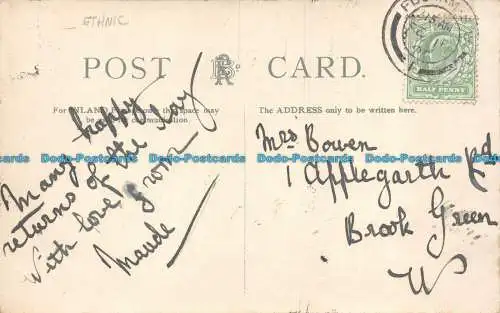 ETHNIC
POST CARD.
HALF PENNY
For INLAND Postage only this space may
be used for communication.
The ADDRESS only to be written here.
Many happy
returns of the day
With love from
Maude
Mrs Bowen
1 Applegarth Rd
Brook Green
W
Dodo-Postcards Dodo-Postcards Dodo-Postcards Dodo-Postcards Dodo-Postcards
Dodo-Postcards Dodo-Postcards Dodo-Postcards Dodo-Postcards Dodo-Postcards